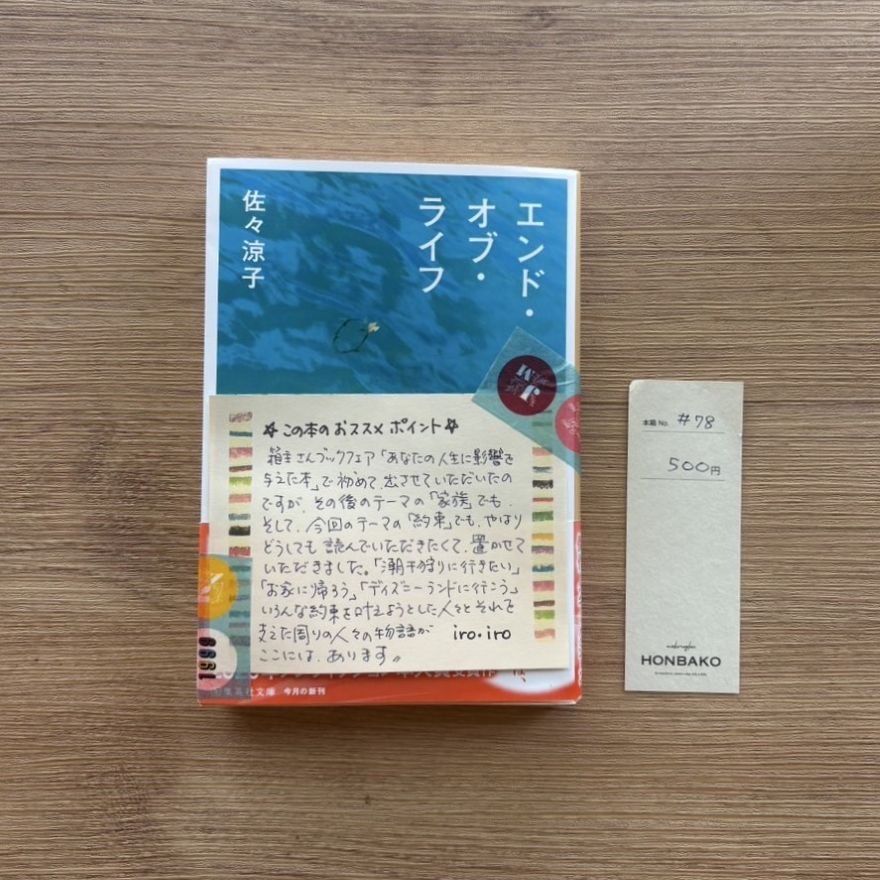 エンド・
オブ・
ライフ
佐々涼子
☆この本のおススメポイント☆
箱主さんブックフェア「あなたの人生に影響を
与えた本」で初めて、出させていただいたの
ですが、その後のテーマの「家族」でも、
そして、今回のテーマの「約束」でも、やはり
どうしても読んでいただきたくて、置かせて
いただきました。「潮干狩りに行きたい」
「お家に帰ろう」「ディズニーランドに行こう」
いろんな約束を叶えようとした人々とそれを
支えた周りの人々の物語が iro・iro
ここには、あります〃
集英社文庫 今月の新刊
本箱 No. #78
500円
HONBAKO